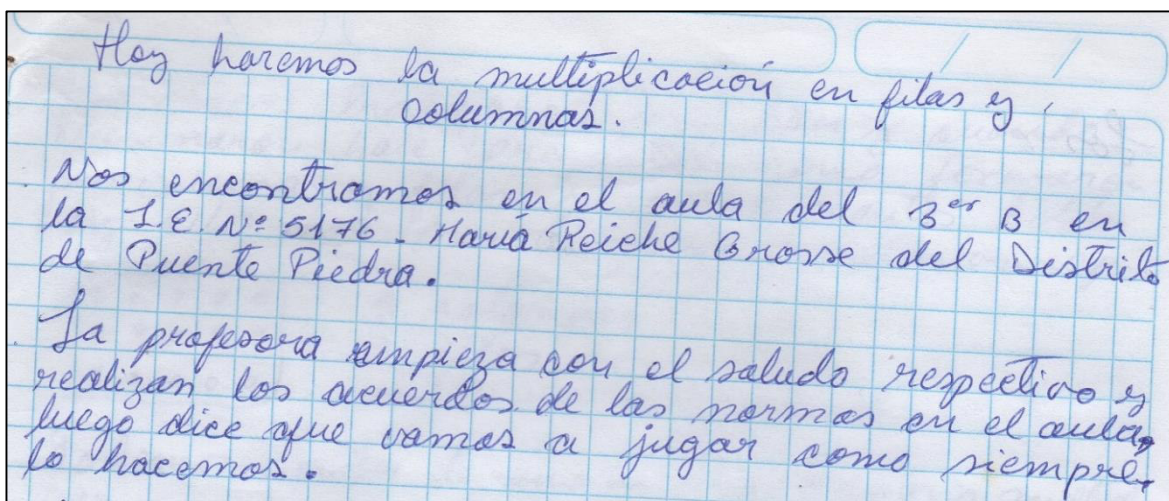 Hoy haremos la multiplicación en filas y
columnas.
Nos encontramos en el aula del 3er B en
la I.E. Nº 5176 - María Reiche Grosse del Distrito
de Puente Piedra.
La profesora empieza con el saludo respectivo y
realizan los acuerdos de las normas en el aula,
luego dice que vamos a jugar como siempre
lo hacemos.